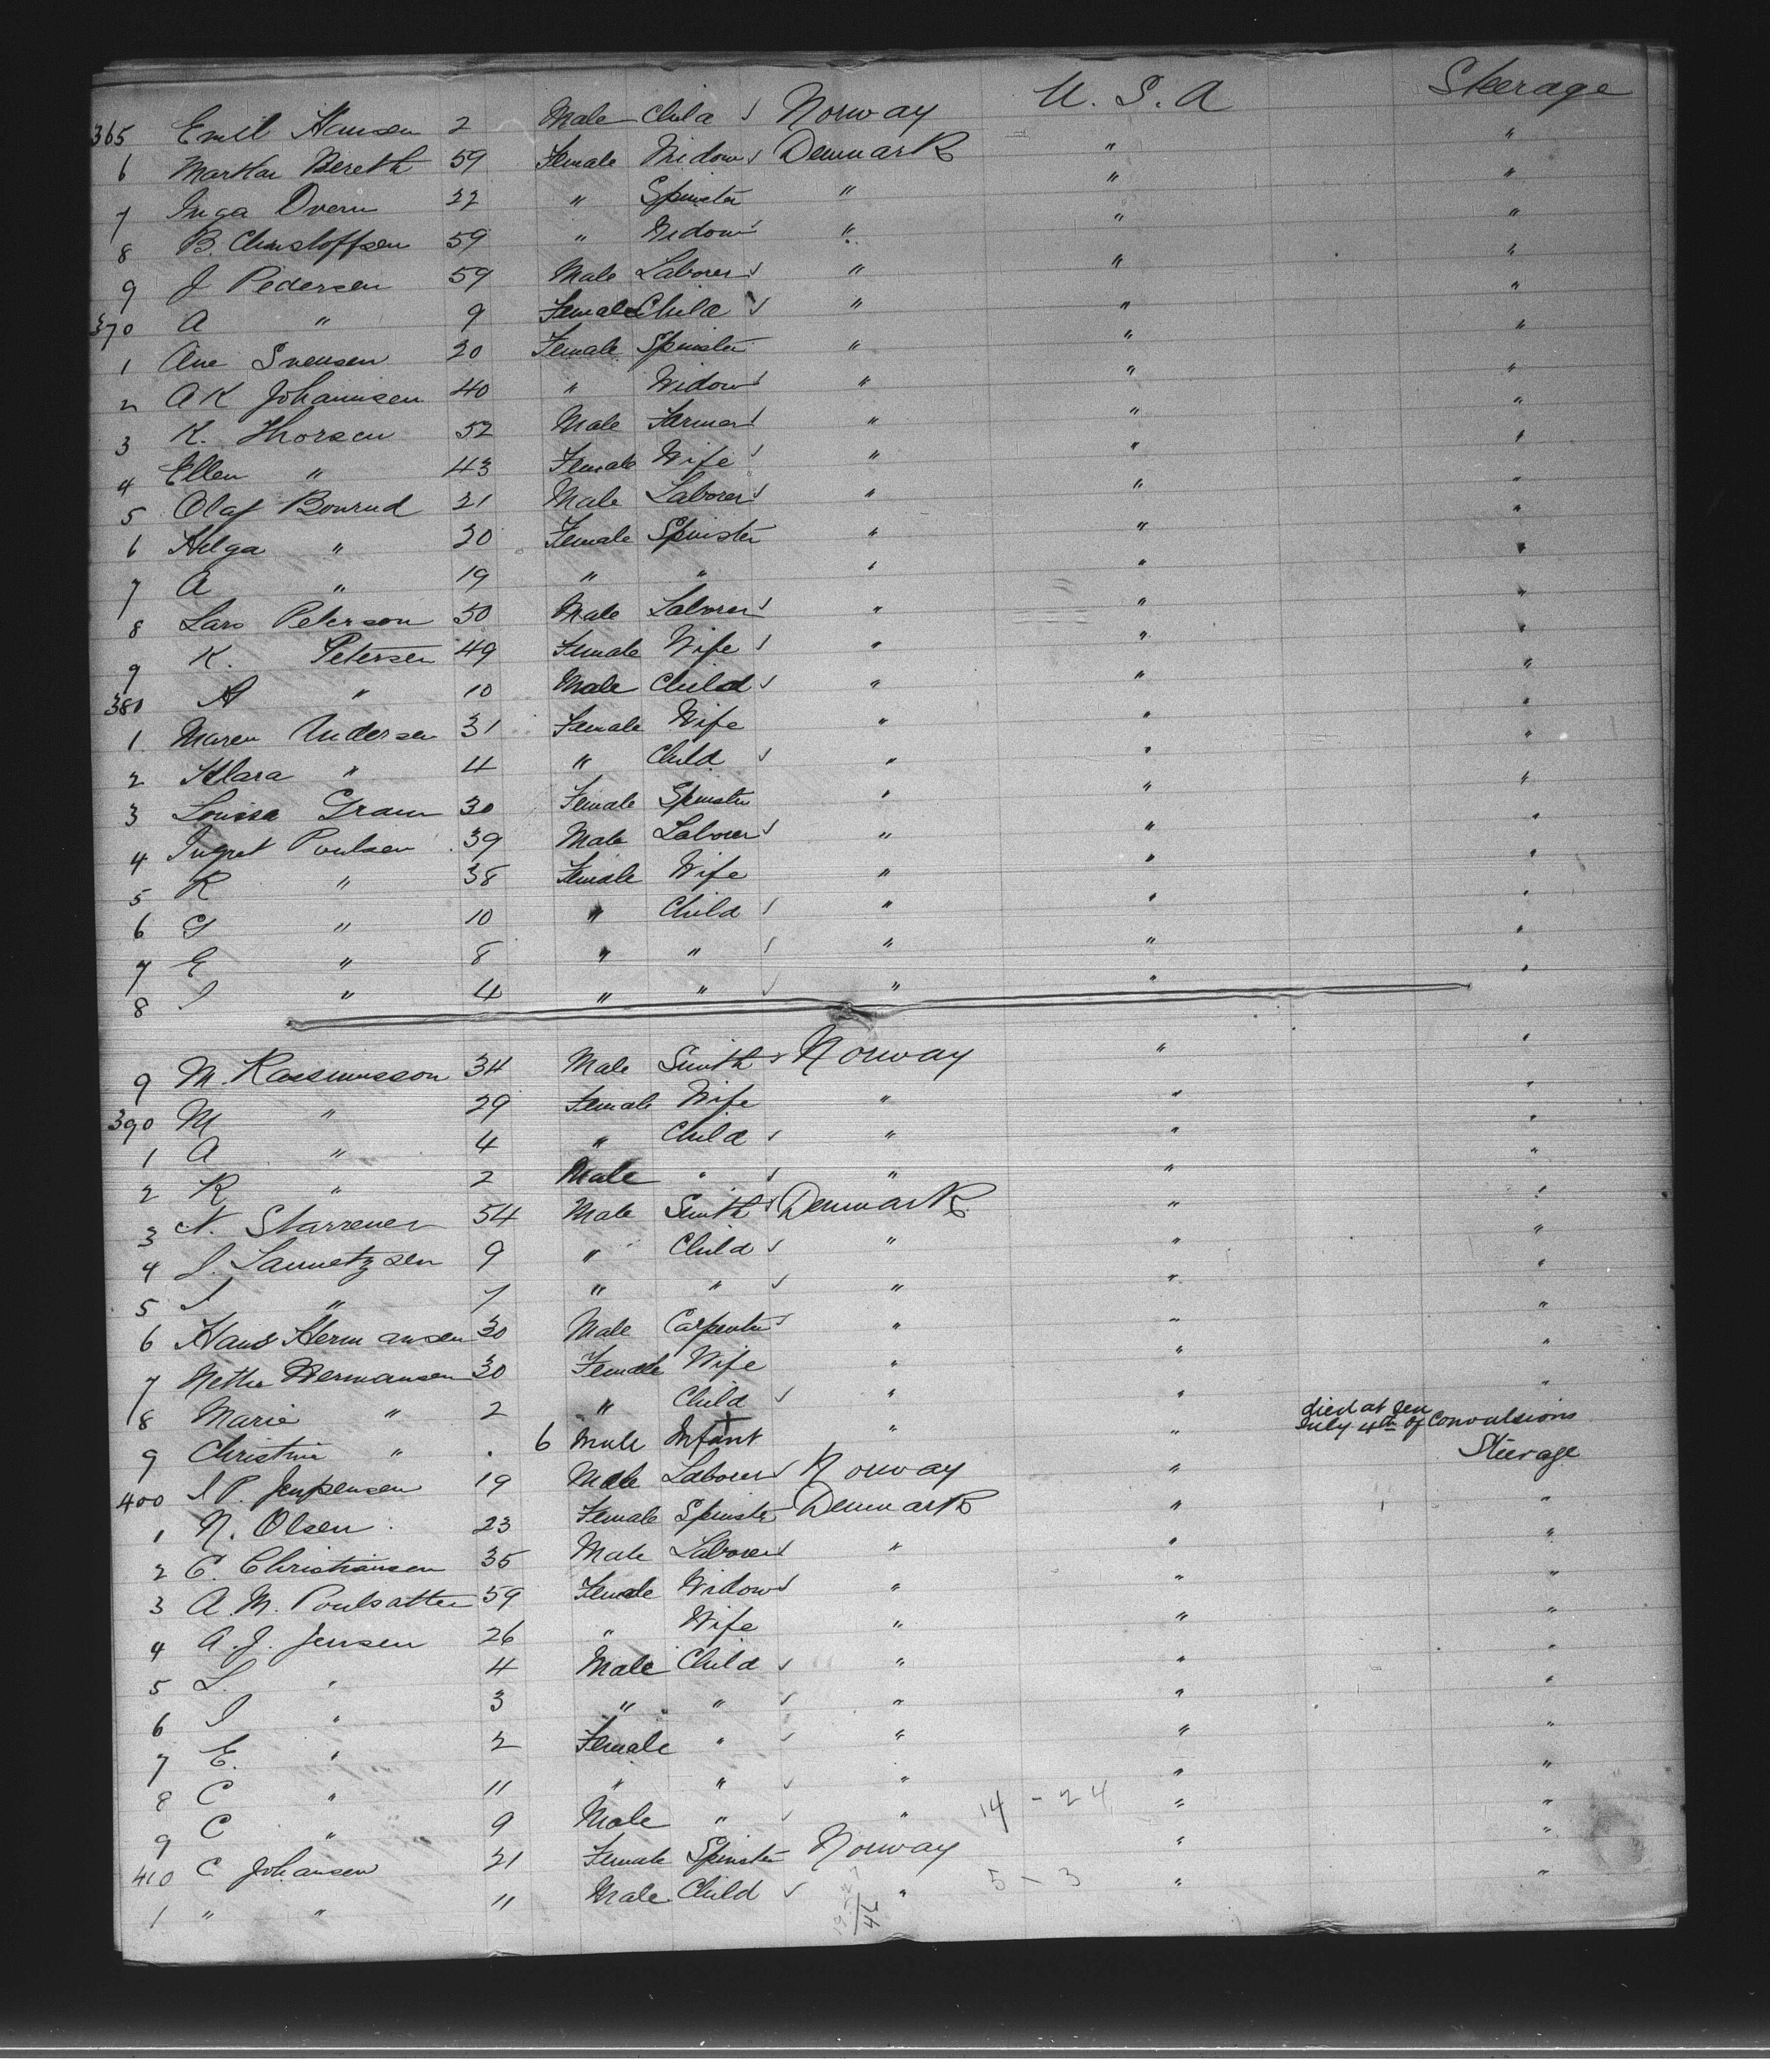 365 Emil Hansen 2 Male Child ✓ Norway U. S. A Steerage
6 Markar Bereth 59 Female Widow ✓ Denmark " "
7 Inga Overn 22 " Spinster " " "
8 B. Christoffsen 59 " Widow ✓ " " "
9 J Pedersen 59 Male Laborer ✓ " " "
370 A " 9 Female Child ✓ " " "
1 Ane Svensen 20 Female Spinster " " "
2 A K Johannsen 40 " Widow ✓ " " "
3 K. Thorsen 52 Male Farmer ✓ " " "
4 Ellen " 43 Female Wife ✓ " " "
5 Olaf Bonrud 21 Male Laborer ✓ " " "
6 Helga " 20 Female Spinster " " "
7 A " 19 " " " " "
8 Lars Peterson 50 Male Laborer ✓ " " "
9 K. Petersen 49 Female Wife ✓ " " "
380 A " 10 Male Child ✓ " " "
1 Maren Andersen 31 Female Wife " " "
2 Klara " 4 " Child ✓ " " "
3 Louisa Gram 30 Female Spinster " " "
4 Poulsen 39 Male Laborer ✓ " " "
5 K " 38 Female Wife " " "
6 G " 10 " Child ✓ " " "
7 E " 8 " " ✓ " " "
8 I " 4 " " ✓ " " "
9 M. Rassmusson 34 Male Smith ✓ Norway " "
390 M " 29 Female Wife " " "
1 A " 4 " Child ✓ " " "
2 K " 2 Male " ✓ " " "
3 N. 54 Male Smith ✓ Denmark " "
4 J. Laumetzsen 9 " Child ✓ " " "
5 J " 7 " " ✓ " " "
6 Hans Hermansen 30 Male Carpenter ✓ " " "
7 Nethe Hermansen 30 Female Wife " " "
8 Marie " 2 " Child ✓ " " "
9 Christine " . 6 Male Infant " " died at Sea July 4th of Convulsions
400 J P. Jenpensen 19 Male Laborer ✓ Norway " Steerage
1 N. Olsen 23 Female Spinster Denmark " "
2 C. Christiansen 35 Male Laborer ✓ " " "
3 A. M. Poulsatter 59 Female Widow ✓ " " "
4 A. J. Jensen 26 " Wife " " "
5 L. " 4 Male Child ✓ " " "
6 J " 3 " " ✓ " " "
7 E. " 2 Female " ✓ " " "
8 C " 11 " " ✓ " " "
9 C " 9 Male " ✓ " 14 - 24 " "
410 C Johansen 21 Female Spinster Norway " "
1 " " 11 Male Child ✓ " 5 - 3 " "
46